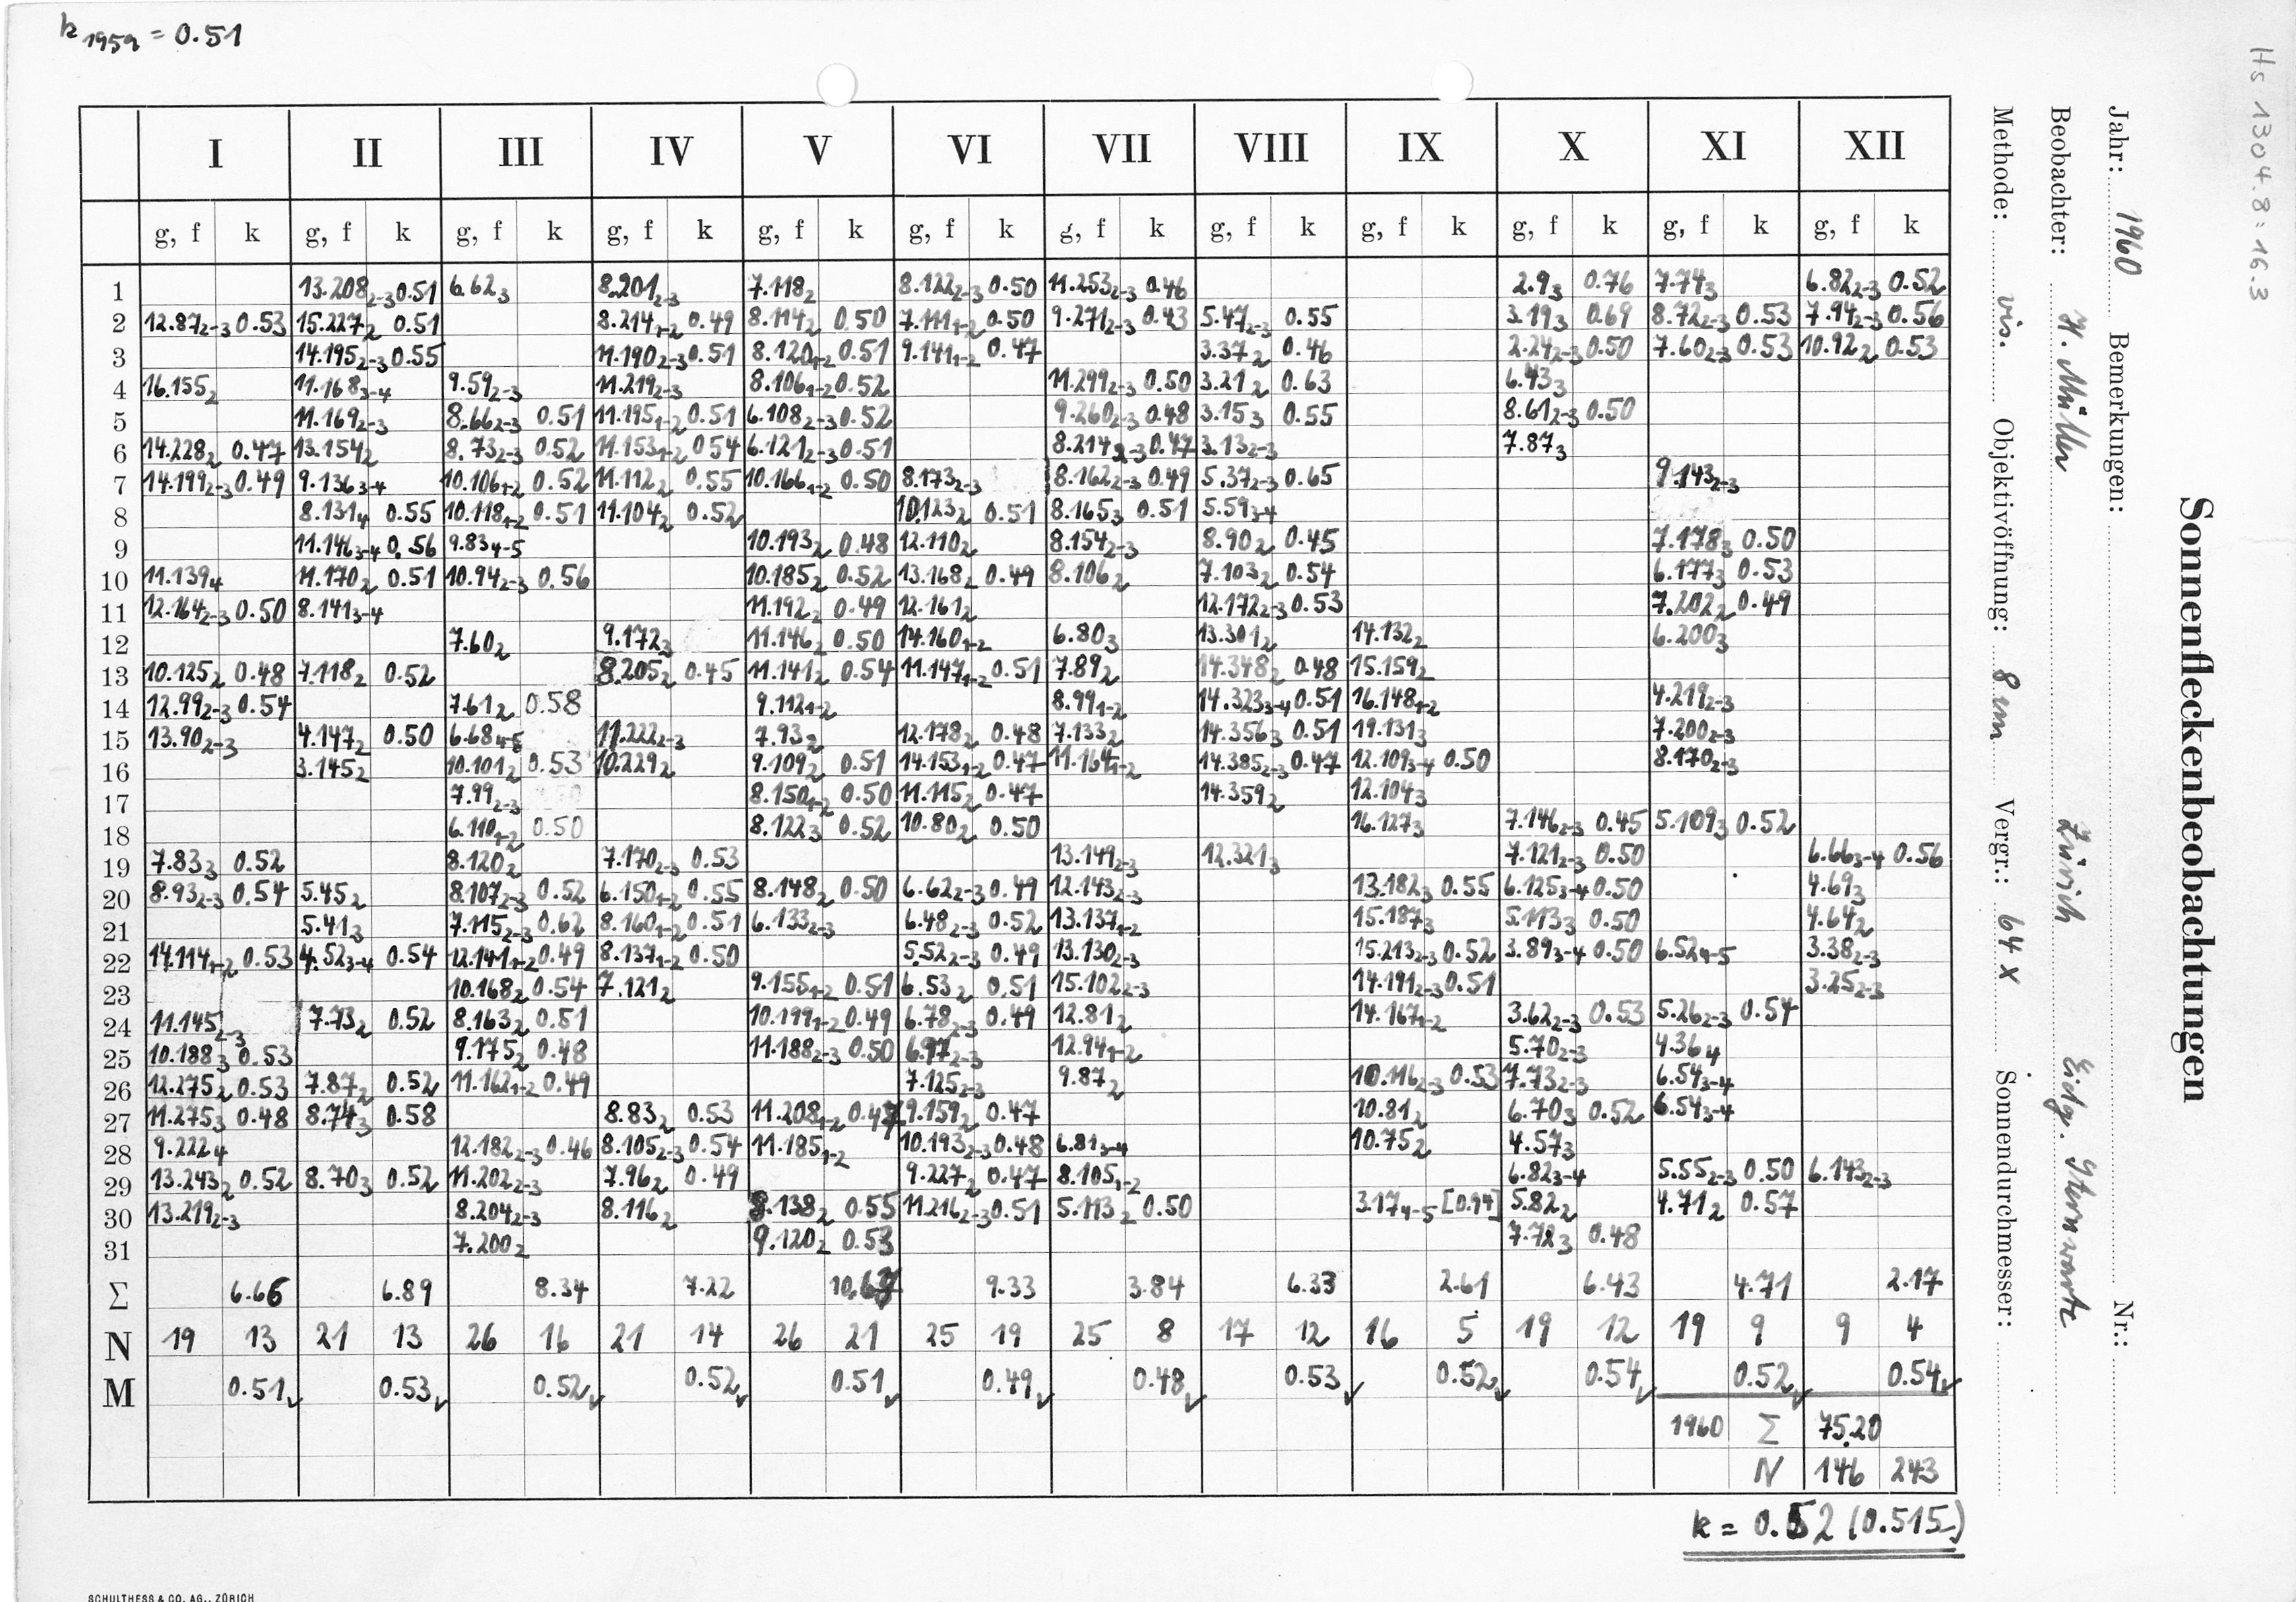 k 1959 = 0.51
Hs 1304.8:16.3
Sonnenfleckenbeobachtungen
Jahr: 1960 Bemerkungen: Nr.:
Beobachter: H. Müller Zürich Eidg. Sternwarte
Methode: vis. Objektivöffnung: 8 cm Vergr.: 64 x Sonnendurchmesser:
I II III IV V VI VII VIII IX X XI XII
g, f k g, f k g, f k g, f k g, f k g, f k g, f k g, f k g, f k g, f k g, f k g, f k
1 13.208 2-3 0.51 6.62 3 8.201 2-3 7.118 2 8.122 2-3 0.50 11.253 2-3 0.46 2.9 3 0.76 7.74 3 6.82 2-3 0.52
2 12.87 2-3 0.53 15.227 2 0.51 8.214 1-2 0.49 8.114 2 0.50 7.111 1-2 0.50 9.271 2-3 0.43 5.47 2-3 0.55 3.19 3 0.69 8.72 2-3 0.53 7.94 2-3 0.56
3 14.195 2-3 0.55 11.190 2-3 0.51 8.120 1-2 0.51 9.141 1-2 0.47 3.37 2 0.46 2.24 2-3 0.50 7.60 2-3 0.53 10.92 2 0.53
4 16.155 2 11.168 3-4 9.59 2-3 11.219 2-3 8.106 1-2 0.52 11.299 2-3 0.50 3.21 2 0.63 6.43 3
5 11.169 2-3 8.66 2-3 0.51 11.195 1-2 0.51 6.108 2-3 0.52 9.260 2-3 0.48 3.15 3 0.55 8.61 2-3 0.50
6 14.228 2 0.47 13.154 2 8.73 2-3 0.52 11.153 1-2 0.54 6.121 2-3 0.51 8.214 2-3 0.47 3.13 2-3 7.87 3
7 14.199 2-3 0.49 9.136 3-4 10.106 1-2 0.52 11.112 2 0.55 10.166 1-2 0.50 8.173 2-3 8.162 2-3 0.49 5.37 2-3 0.65 9.143 2-3
8 8.131 4 0.55 10.118 1-2 0.51 11.104 2 0.52 10.123 2 0.51 8.165 3 0.51 5.59 3-4
9 11.146 3-4 0.56 9.83 4-5 10.193 2 0.48 12.110 2 8.154 2-3 8.90 2 0.45 7.178 3 0.50
10 11.139 4 11.170 2 0.51 10.94 2-3 0.56 10.185 2 0.52 13.168 2 0.49 8.106 2 7.103 2 0.54 6.177 3 0.53
11 12.164 2-3 0.50 8.141 3-4 11.192 2 0.49 12.161 2 12.172 2-3 0.53 7.202 2 0.49
12 7.60 2 9.172 3 11.146 2 0.50 14.160 1-2 6.80 3 13.301 2 14.132 2 6.200 3
13 10.125 2 0.48 7.118 2 0.52 8.205 2 0.45 11.141 2 0.54 11.147 1-2 0.51 7.89 2 14.348 2 0.48 15.159 2
14 12.99 2-3 0.54 7.61 2 0.58 9.112 1-2 8.99 1-2 14.323 3-4 0.51 16.148 1-2 4.219 2-3
15 13.90 2-3 4.147 2 0.50 6.68 4-5 11.222 2-3 7.93 2 12.178 2 0.48 7.133 2 14.356 3 0.51 19.131 3 7.200 2-3
16 3.145 2 10.101 2 0.53 10.229 2 9.109 2 0.51 14.153 1-2 0.47 11.164 1-2 14.385 2-3 0.47 12.109 3-4 0.50 8.170 2-3
17 7.99 2-3 8.150 1-2 0.50 11.115 2 0.47 14.359 2 12.104 3
18 6.110 1-2 0.50 8.122 3 0.52 10.80 2 0.50 16.127 3 7.146 2-3 0.45 5.109 3 0.52
19 7.83 3 0.52 8.120 2 7.170 2-3 0.53 13.149 2-3 12.321 3 7.121 2-3 0.50 6.66 3-4 0.56
20 8.93 2-3 0.54 5.45 2 8.107 2-3 0.52 6.150 1-2 0.55 8.148 2 0.50 6.62 2-3 0.49 12.143 2-3 13.182 3 0.55 6.125 3-4 0.50 4.69 3
21 5.41 3 7.115 2-3 0.62 8.160 1-2 0.51 6.133 2-3 6.48 2-3 0.52 13.137 1-2 15.187 3 5.113 3 0.50 4.64 2
22 14.114 1-2 0.53 4.52 3-4 0.54 12.141 1-2 0.49 8.137 1-2 0.50 5.52 2-3 0.49 13.130 2-3 15.213 2-3 0.52 3.89 3-4 0.50 6.52 4-5 3.38 2-3
23 10.168 2 0.54 7.121 2 9.155 1-2 0.51 6.53 2 0.51 15.102 2-3 14.191 2-3 0.51 3.25 2-3
24 11.145 2-3 7.73 2 0.52 8.163 2 0.51 10.199 1-2 0.49 6.78 2-3 0.49 12.81 2 14.167 1-2 3.62 2-3 0.53 5.26 2-3 0.54
25 10.188 3 0.53 9.175 2 0.48 11.188 2-3 0.50 6.97 2-3 12.94 1-2 5.70 2-3 4.36 4
26 12.275 2 0.53 7.87 2 0.52 11.162 1-2 0.49 7.125 2-3 9.87 2 10.116 2-3 0.53 7.73 2-3 6.54 3-4
27 11.275 3 0.48 8.74 3 0.58 8.83 2 0.53 11.208 1-2 0.47 9.159 2 0.47 10.81 2 6.70 3 0.52 6.54 3-4
28 9.222 4 12.182 2-3 0.46 8.105 2-3 0.54 11.185 1-2 10.193 2-3 0.48 6.81 3-4 10.75 2 4.57 3
29 13.243 2 0.52 8.70 3 0.52 11.202 2-3 7.96 2 0.49 9.227 2 0.47 8.105 1-2 6.82 3-4 5.55 2-3 0.50 6.143 2-3
30 13.219 2-3 8.204 2-3 8.116 2 8.138 2 0.55 11.216 2-3 0.51 5.113 2 0.50 3.17 4-5 [0.94] 5.82 2 4.71 2 0.57
31 7.200 2 9.120 2 0.53 7.72 3 0.48
Σ 6.66 6.89 8.34 7.22 10.67 9.33 3.84 6.33 2.61 6.43 4.71 2.17
N 19 13 21 13 26 16 21 14 26 21 25 19 25 8 17 12 16 5 19 12 19 9 9 4
M 0.51 ✓ 0.53 ✓ 0.52 ✓ 0.52 ✓ 0.51 ✓ 0.49 ✓ 0.48 ✓ 0.53 ✓ 0.52 ✓ 0.54 ✓ 0.52 ✓ 0.54 ✓
1960 Σ 75.20
N 146 243
k = 0.52 (0.515)
SCHULTHESS & CO. AG., ZÜRICH